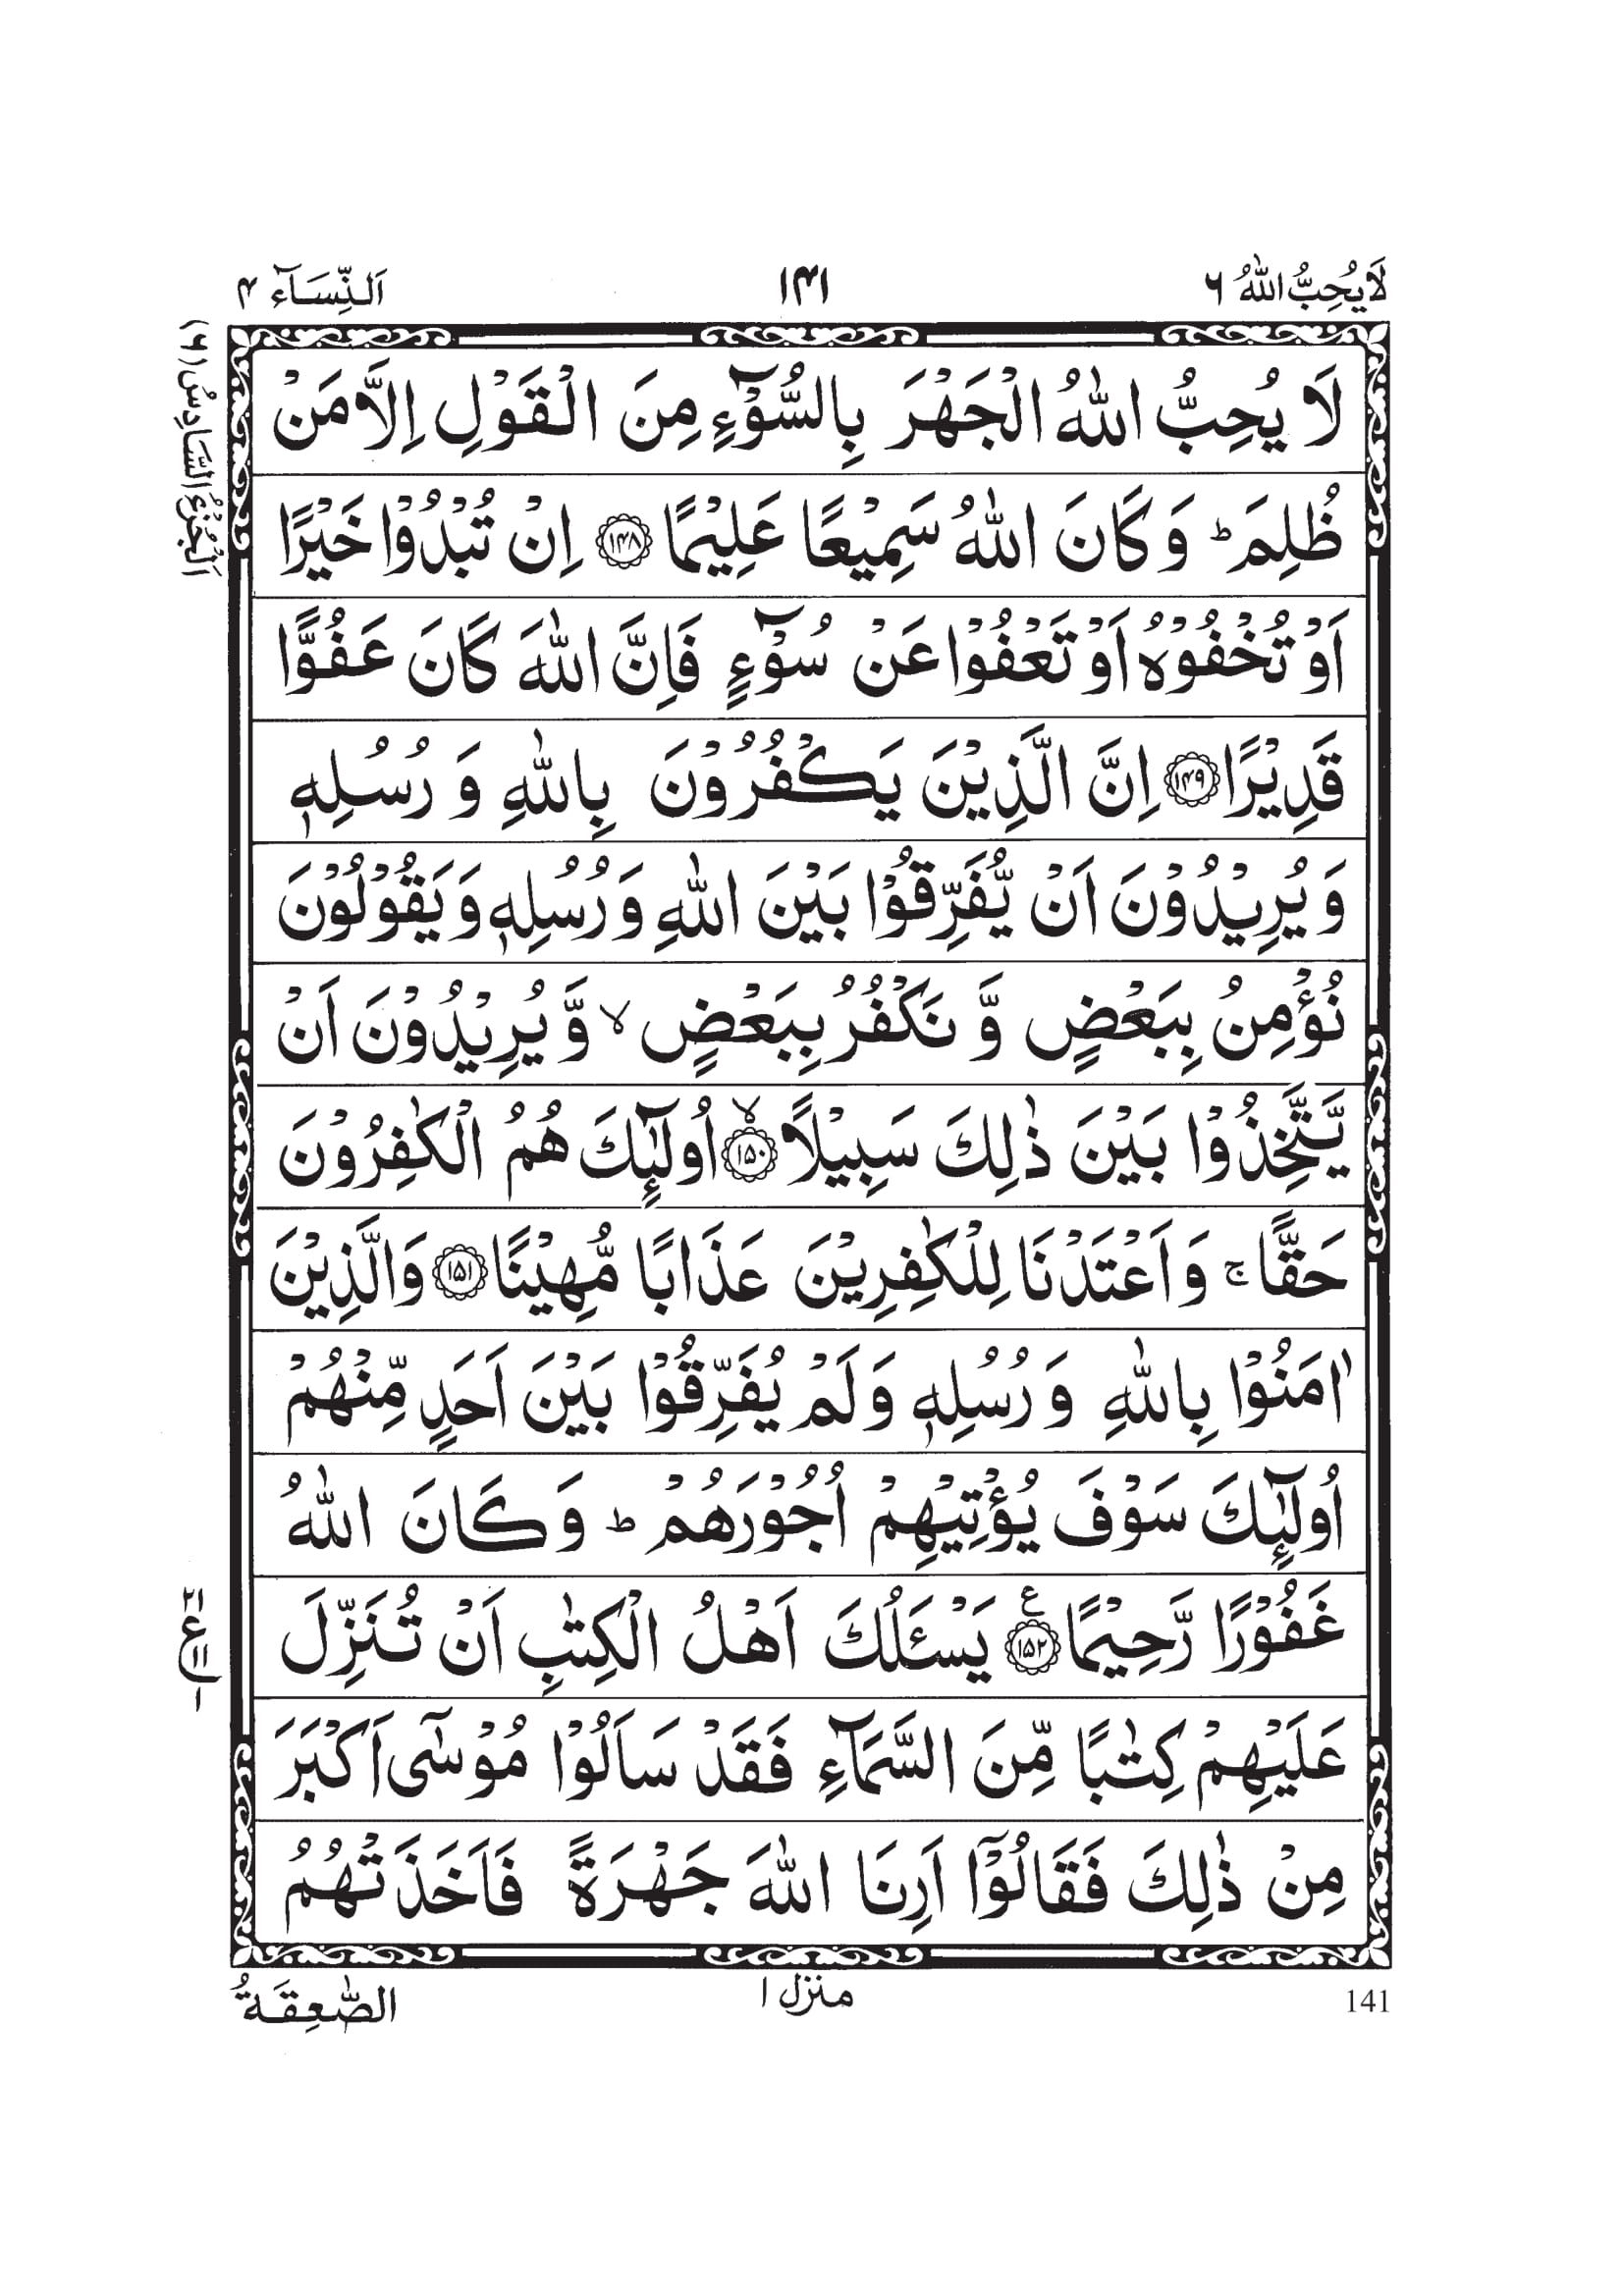 لَا يُحِبُّ اللّٰهُ ٦
١۴١
اَلنِّسَآء ۴
اَلْجُزْءُ السَّادِسُ (٦)
لَا يُحِبُّ اللّٰهُ الْجَهْرَ بِالسُّوْٓءِ مِنَ الْقَوْلِ اِلَّا مَنْ
ظُلِمَ ؕ وَ كَانَ اللّٰهُ سَمِيْعًا عَلِيْمًا ﴿۱۴۸﴾ اِنْ تُبْدُوْا خَيْرًا
اَوْ تُخْفُوْهُ اَوْ تَعْفُوْا عَنْ سُوْٓءٍ فَاِنَّ اللّٰهَ كَانَ عَفُوًّا
قَدِيْرًا ﴿۱۴۹﴾ اِنَّ الَّذِيْنَ يَكْفُرُوْنَ بِاللّٰهِ وَ رُسُلِهٖ
وَ يُرِيْدُوْنَ اَنْ يُّفَرِّقُوْا بَيْنَ اللّٰهِ وَ رُسُلِهٖ وَ يَقُوْلُوْنَ
نُؤْمِنُ بِبَعْضٍ وَّ نَكْفُرُ بِبَعْضٍ ۙ وَّ يُرِيْدُوْنَ اَنْ
يَّتَّخِذُوْا بَيْنَ ذٰلِكَ سَبِيْلًا ﴿۱۵۰﴾ ۙ اُولٰٓئِكَ هُمُ الْكٰفِرُوْنَ
حَقًّا ۚ وَ اَعْتَدْنَا لِلْكٰفِرِيْنَ عَذَابًا مُّهِيْنًا ﴿۱۵۱﴾ وَالَّذِيْنَ
اٰمَنُوْا بِاللّٰهِ وَ رُسُلِهٖ وَ لَمْ يُفَرِّقُوْا بَيْنَ اَحَدٍ مِّنْهُمْ
اُولٰٓئِكَ سَوْفَ يُؤْتِيْهِمْ اُجُوْرَهُمْ ؕ وَ كَانَ اللّٰهُ
غَفُوْرًا رَّحِيْمًا ﴿۱۵۲﴾ ع يَسْـَٔلُكَ اَهْلُ الْكِتٰبِ اَنْ تُنَزِّلَ
عَلَيْهِمْ كِتٰبًا مِّنَ السَّمَآءِ فَقَدْ سَاَلُوْا مُوْسٰٓى اَكْبَرَ
مِنْ ذٰلِكَ فَقَالُوْٓا اَرِنَا اللّٰهَ جَهْرَةً فَاَخَذَتْهُمُ
الصّٰعِقَةُ
منزل ۱
141